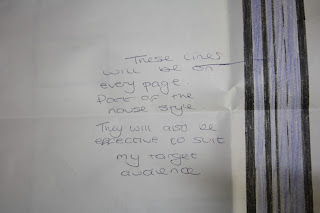 These lines
will be on
every page
Part of the
house style
They will also be
effective to suit
my target
audience